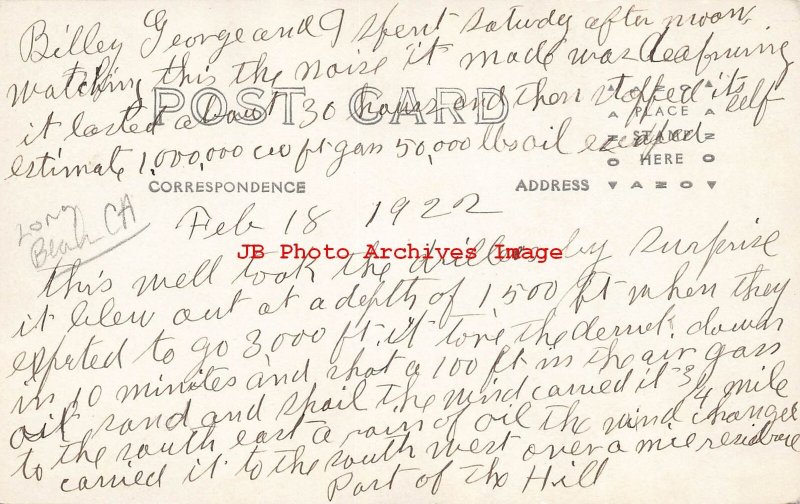 Billey George and I spent Satuday after noon
watching this the noise it made was deafning
it lasted about 30 hours and then stopped its self
estimate 1,000,000 cu ft gas 50,000 lbs oil escaped
POST CARD
AZO
PLACE
STAMP
HERE
AZO
CORRESPONDENCE
ADDRESS
Long
Beach CA
Feb 18 1922
JB Photo Archives Image
this well took the drillers by surprise
it blew out at a depth of 1500 ft when they
expted to go 3,000 ft. it tore the derrick down
in 10 minites and shot a 100 ft in the air gass
oil sand and shail the wind carried it 3/4 mile
to the south east a rain of oil the wind changed
carried it to the south west over a mie residence
Part of the Hill